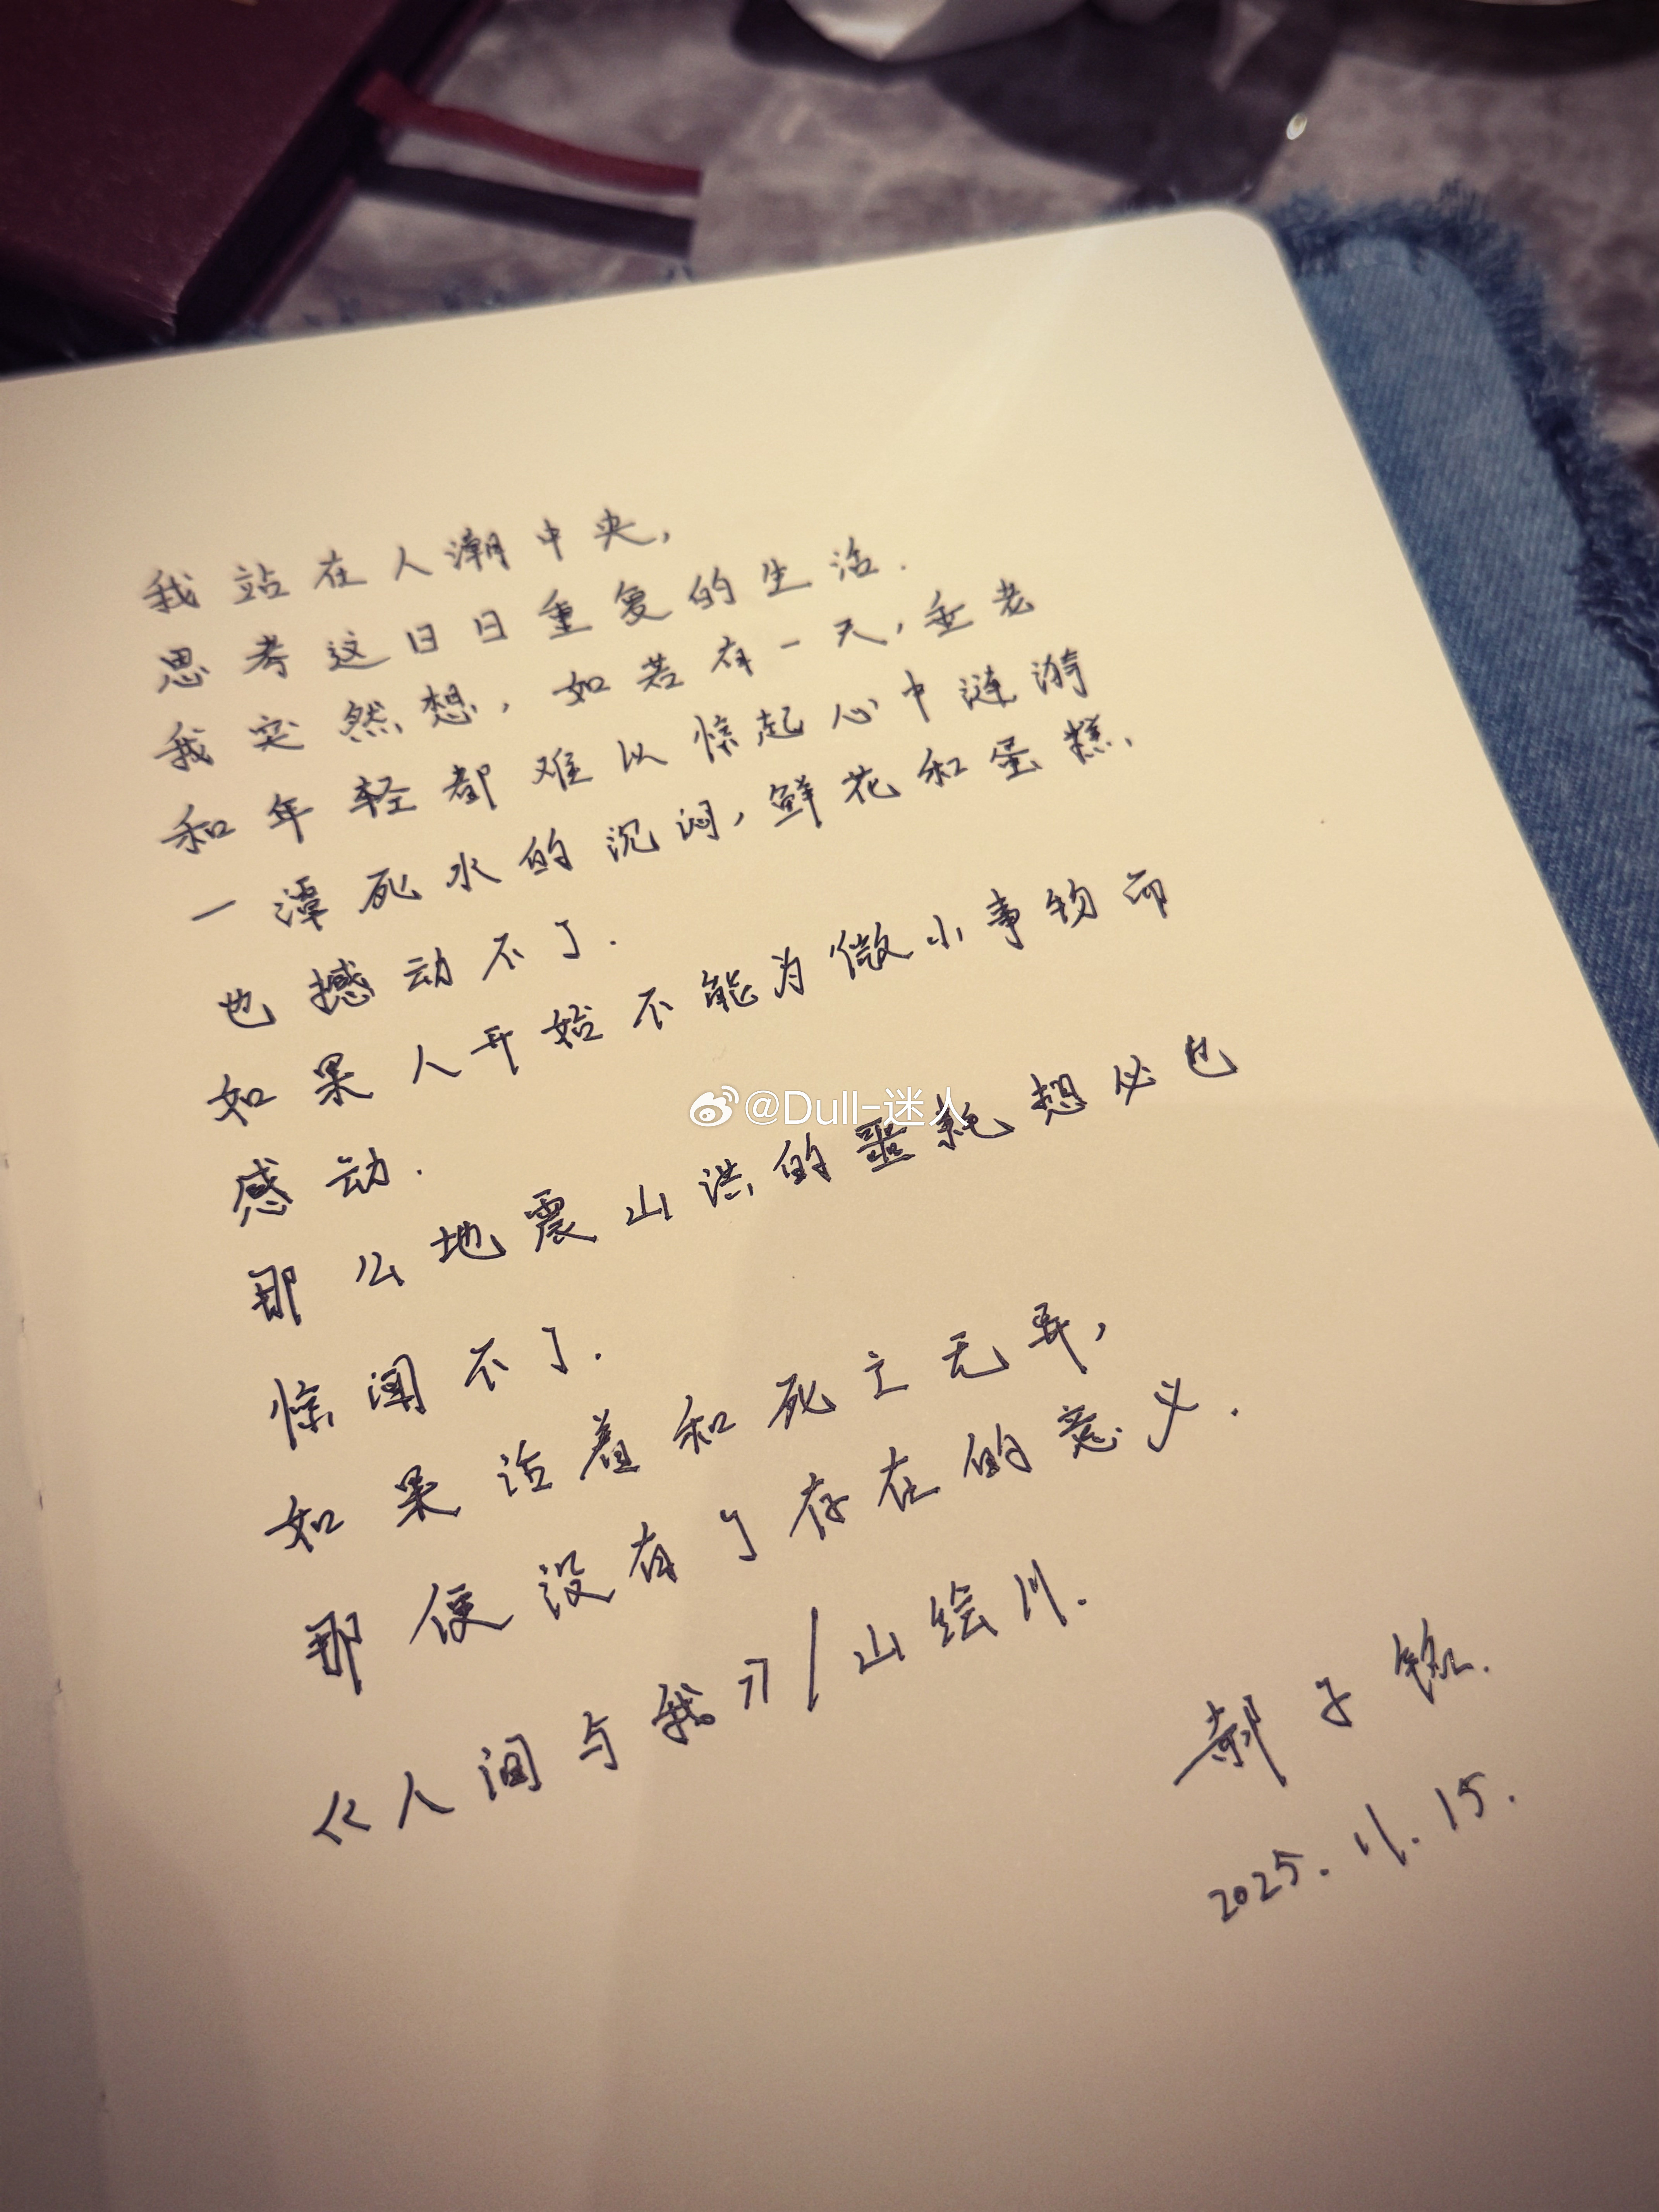 我站在人潮中央，
思考这日日重复的生活.
我突然想，如若有一天，垂老
和年轻都难以惊起心中涟漪
一潭死水的沉闷，鲜花和蛋糕，
也撼动不了.
如果人开始不能为微小事物而
感动.
那么地震山洪的噩耗想必也
惊闻不了.
如果活着和死亡无异，
那便没有了存在的意义.
《人间与我》/山绘川.
郝子铭.
2025.11.15.
@Dull-迷人